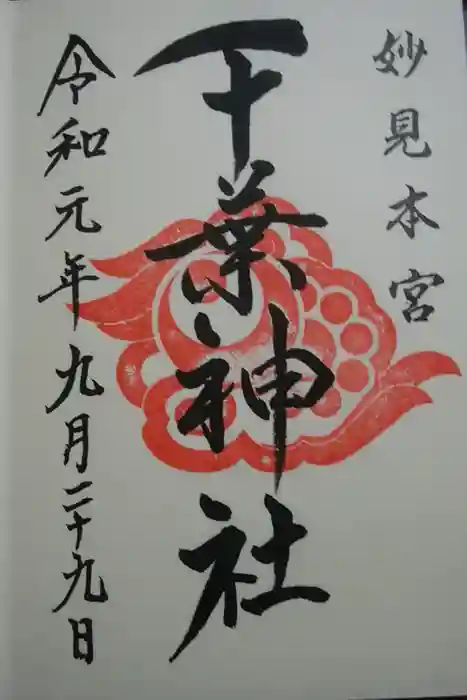 妙見本宮
千葉神社
令和元年九月二十九日